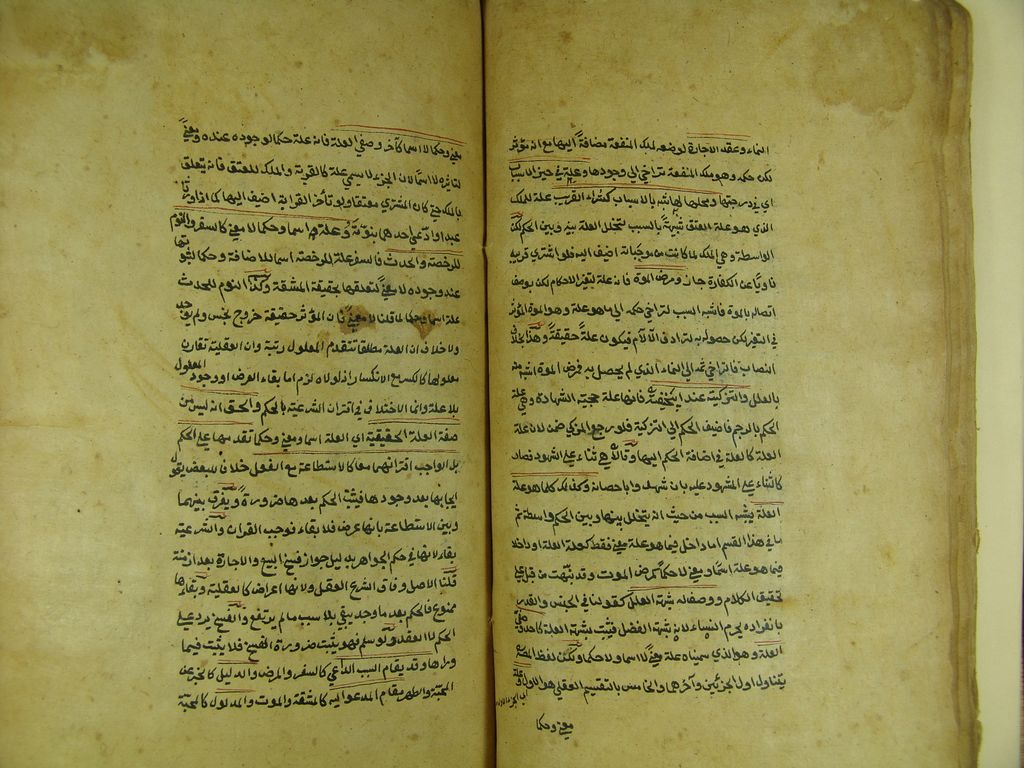 النماء وعقد الاجارة لوضعه لملك المنفعة مضافة اليها مع انه مؤثر
لكن حكمه وهو ملك المنفعة تراخى الى وجودها وعلة في حيز الاسباب
اي في درجتها ومحلها لها شبه بالاسباب كشراء القريب علة للملك
الذي هو علة العتق شبهة بالسبب لتخلل العلة بينه وبين الحكم لكن
الواسطة وهي الملك لما كانت من موجباته اضيف اليه فلو اشترى قريبه
ناويا عن الكفارة جاز ومرض الموت فانه علة لتغير الاحكام لكن بوصف
اتصاله بالموت فاشبه السبب لتراخى حكمه الى ما هو علة وهو الموت المؤثر
في التغير لكن حصوله به لترادف الآلام فيكون علة حقيقة وهذا بخلاف
النصاب فان تراخى ثمه الى النماء الذي لم يحصل به فمرض الموت اشبه منه
بالعلل والتزكية عند ابي حنيفة فانها علة حجية الشهادة وهي علة
الحكم بالرجم فاضيف الحكم الى التزكية فلو رجع المزكي ضمن لان علة
العلة كالعلة في اضافة الحكم اليها وقالا هي ثناء على الشهود فصار
كالثناء على المشهود عليه بان شهد وا باحصانه وكذلك كلما هو علة
العلة يشبه السبب من حيث انه يتخلل بينها وبين الحكم واسطة ثم
ما في هذا القسم اما داخل فيما هو علة معنى فقط كعلة العلة او داخل
فيما هو علة اسما ومعنى لا حكما كمرض الموت وقد نبهت من قبل على
تحقيق الكلام ووصف له شبهة العلل كقولنا في الجنس والقدر
بانفراده يحرم النساء لانه شبهة الفضل فيثبت بشبهة العلة كاحد وصفي
العلة وهو الذي سميناه علة معنى لا اسما ولا حكما ولكن لفظ
يتناول اول الجزئين وآخرهما والخامس بالتقسيم العقلي هو الاول
معنى وحكما
معنى وحكما لا اسما كآخر وصفي العلة فانه علة حكما لوجوده عنده ومعنى
لتاثيره لا اسما لان الجزء لا يسمى علة كالقرابة والملك للعتق فانه تعلق
بالملك حتى كان المشتري معتقا ولو تأخر القرابة اضيف اليها كما اذا ورثا
عبدا وادعى احدهما بنوته وعلة اسما وحكما لا معنى كالسفر والنوم
للرخصة والحدث فالسفر علة للرخصة اسما للاضافة وحكما لثبوتها
عند وجوده لا معنى لتعلقها بحقيقة المشقة وكذا النوم للحدث
علة اسما وحكما لما قلنا لا معنى فان المؤثر حقيقة خروج نجس ولم يوجد
ولا خلاف ان العلة مطلقا تتقدم المعلول رتبة وان العقلية تقارن
معلولها كالكسر مع الانكسار اذ لولاه لزم اما بقاء العرض او وجود المعلول
بلا علة وانما الاختلاف في اقتران الشرعية بالحكم والحق انه ليس من
صفة العلة الحقيقية اي العلة اسما ومعنى وحكما تقدمها على الحكم
بل الواجب اقترانهما معا كالاستطاعة مع الفعل خلافا للبعض يقول
ايجابها بعد وجودها فيثبت الحكم بعدها ضرورة ويفرق بينهما
وبين الاستطاعة بانها عرض فلا بقاء فوجب القران والشرعية
بقاء لانها في حكم الجواهر بدليل جواز فسخ البيع والاجارة بعد ازمنة
قلنا الاصل وفاق الشرع العقل ولانها اعراض كالعقلية وبقاءها
ممنوع فالحكم بعد ما وجد يبقى بلا سبب ما لم يرتفع والفسخ يرد على
الحكم لا العقد ولو سلم فهو يثبت ضرورة الفسخ فلا يثبت فيما
وراءها وقد يقام السبب الداعي كالسفر والمرض والدليل كالخبر عن
المحبة والطهر مقام المدعو اليه كالمشقة والموت والمدلول كالمحبة